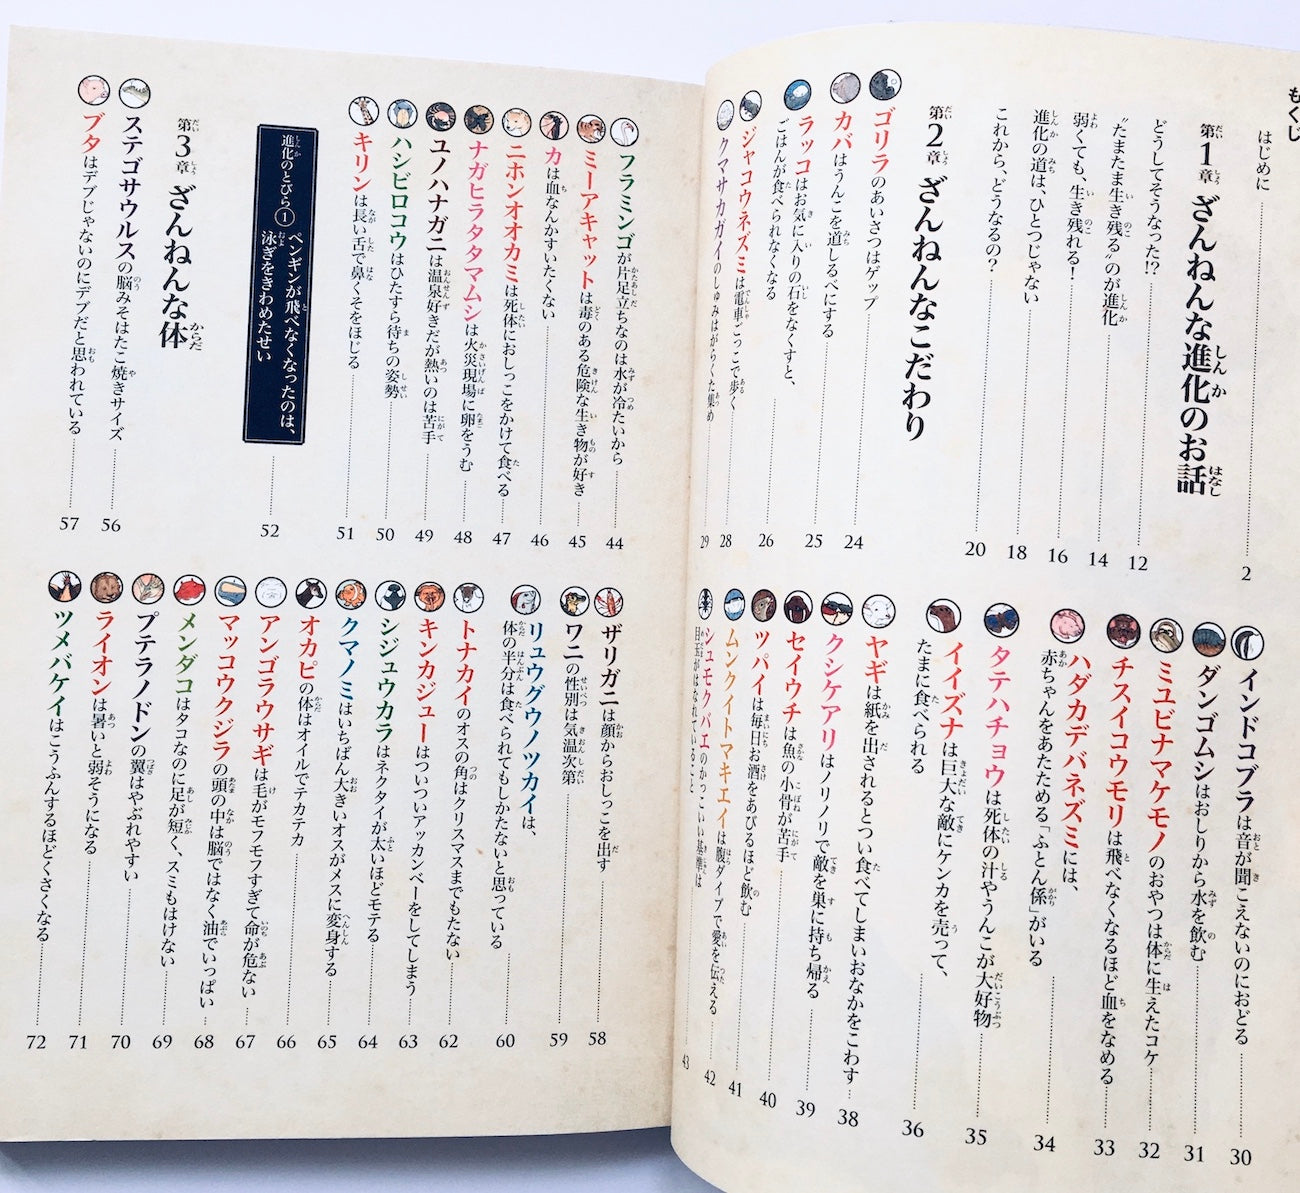 もくじ
はじめに 2
第1章 ざんねんな進化のお話
どうしてそうなった!? 12
“たまたま生き残る”のが進化 14
弱くても、生き残れる! 16
進化の道は、ひとつじゃない 18
これから、どうなるの? 20
第2章 ざんねんなこだわり
ゴリラのあいさつはゲップ 24
カバはうんこを道しるべにする 25
ラッコはお気に入りの石をなくすと、
ごはんが食べられなくなる 26
ジャコウネズミは電車ごっこで歩く 28
クマサカガイのしゅみはがらくた集め 29
インドコブラは音が聞こえないのにおどる 30
ダンゴムシはおしりから水を飲む 31
ミユビナマケモノのおやつは体に生えたコケ 32
チスイコウモリは飛べなくなるほど血をなめる 33
ハダカデバネズミには、
赤ちゃんをあたためる「ふとん係」がいる 34
タテハチョウは死体の汁やうんこが大好物 35
イイズナは巨大な敵にケンカを売って、
たまに食べられる 36
ヤギは紙を出されるとつい食べてしまいおなかをこわす 38
クシケアリはノリノリで敵を巣に持ち帰る 39
セイウチは魚の小骨が苦手 40
ツパイは毎日お酒をあびるほど飲む 41
ムンクイトマキエイは腹ダイブで愛を伝える 42
シュモクバエのかっこいい基準は
目玉がはなれていること 43
フラミンゴが片足立ちなのは水が冷たいから 44
ミーアキャットは毒のある危険な生き物が好き 45
カは血なんかすいたくない 46
ニホンオオカミは死体におしっこをかけて食べる 47
ナガヒラタタマムシは火災現場に卵をうむ 48
ユノハナガニは温泉好きだが熱いのは苦手 49
ハシビロコウはひたすら待ちの姿勢 50
キリンは長い舌で鼻くそをほじる 51
進化のとびら① ペンギンが飛べなくなったのは、
泳ぎをきわめたせい 52
第3章 ざんねんな体
ステゴサウルスの脳みそはたこ焼きサイズ 56
ブタはデブじゃないのにデブだと思われている 57
ザリガニは顔からおしっこを出す 58
ワニの性別は気温次第 59
リュウグウノツカイは、
体の半分は食べられてもしかたないと思っている 60
トナカイのオスの角はクリスマスまでもたない 62
キンカジューはついついアッカンベーをしてしまう 63
シジュウカラはネクタイが太いほどモテる 64
クマノミはいちばん大きいオスがメスに変身する 65
オカピの体はオイルでテカテカ 66
アンゴラウサギは毛がモフモフすぎて命が危ない 67
マッコウクジラの頭の中は脳ではなく油でいっぱい 68
メンダコはタコなのに足が短く、スミもはけない 69
プテラノドンの翼はやぶれやすい 70
ライオンは暑いと弱そうになる 71
ツメバケイはこうふんするほどくさくなる 72